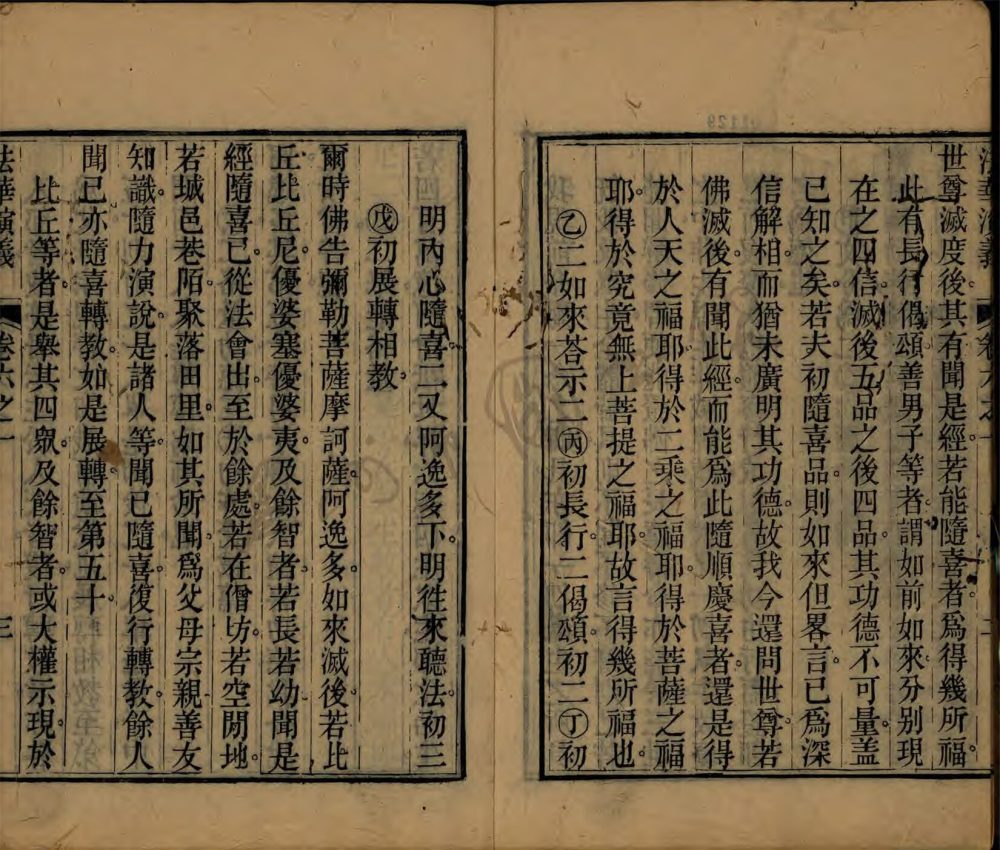 世尊滅度後。其有聞是經若能隨喜者。爲得幾所福。
此有長行偈頌善男子等者。謂如前如來分别現
在之四信。滅後五品之後四品。其功德不可量。盖
已知之矣。若夫初隨喜品。則如來但畧言。已爲深
信解相。而猶未廣明其功德。故我今還問世尊。若
佛滅後。有聞此經。而能爲此隨順慶喜者。還是得
於人天之福耶。得於二乘之福耶。得於菩薩之福
耶。得於究竟無上菩提之福耶。故言得幾所福也。
乙二如來荅示二丙初長行。二偈頌。初二丁初
明內心隨喜。二又阿逸多下。明徃來聽法。初三
戊初展轉相教。
爾時佛告彌勒菩薩摩訶薩。阿逸多。如來滅後。若比
丘比丘尼。優婆塞優婆夷。及餘智者。若長若幼。聞是
經隨喜已。從法會出。至於餘處。若在僧坊。若空閒地。
若城邑巷陌。聚落田里。如其所聞。爲父母宗親善友
知識。隨力演說。是諸人等。聞已隨喜。復行轉教。餘人
聞已。亦隨喜轉教。如是展轉。至第五十。
比丘等者。是舉其四衆。及餘智者。或大權示現。於
法華演義
卷六之一
三